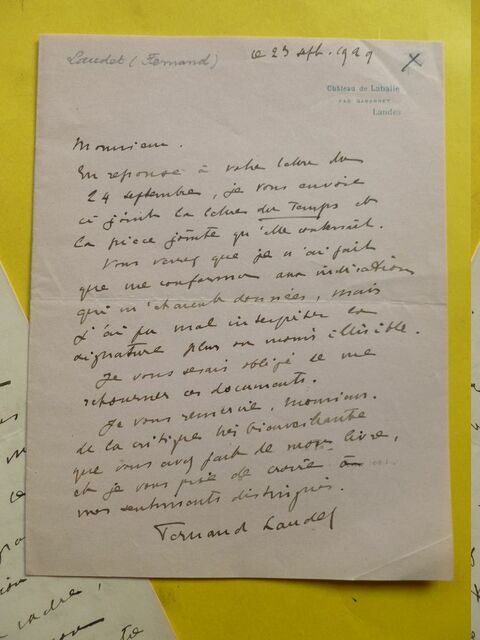 Laudet (Fernand)
ce 25 sept. 1929
Château de Laballe
PAR GABARRET
Landes
Monsieur.
En réponse à votre lettre du
24 septembre, je vous envoie
ci joint la lettre du Temps et
la pièce jointe qu'elle contenait.
Vous verrez que je n'ai fait
que me conformer aux indications
qui m'étaient données, mais
j'ai pu mal interpréter la
signature plus ou moins illisible.
Je vous serais obligé de me
retourner ces documents.
Je vous remercie, Monsieur,
de la critique très bienveillante
que vous avez fait de mon livre,
et je vous prie de croire à
mes sentiments distingués.
Fernand Laudet